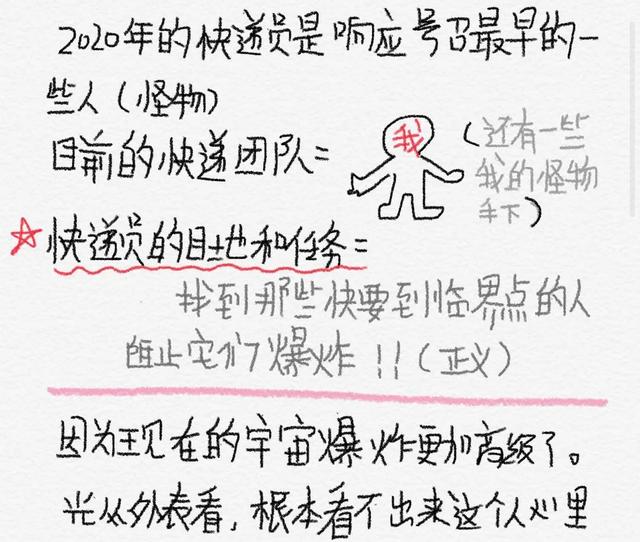 2020年的快递员是响应号召最早的一
些人(怪物)
目前的快递团队=
我
(还有一些
我的怪物
手下)
☆快递员的目地和任务=
找到那些快要到临界点的人
阻止它们爆炸!!(正义)
因为现在的宇宙爆炸更加高级了。
光从外表看,根本看不出来这个人心里